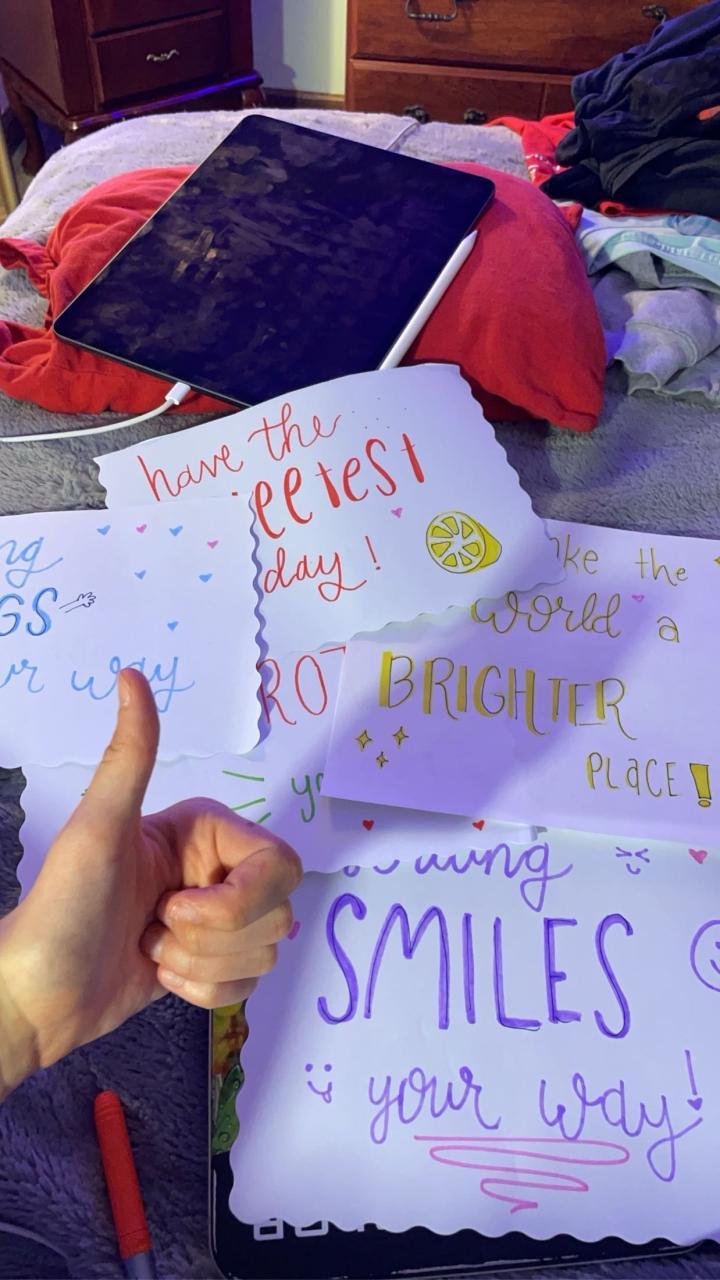 have the
eetest
day!
ng
GS
ur way
ke the
world a
BRIGHTER
PLACE!
ROT
yo
SMILES
your way!